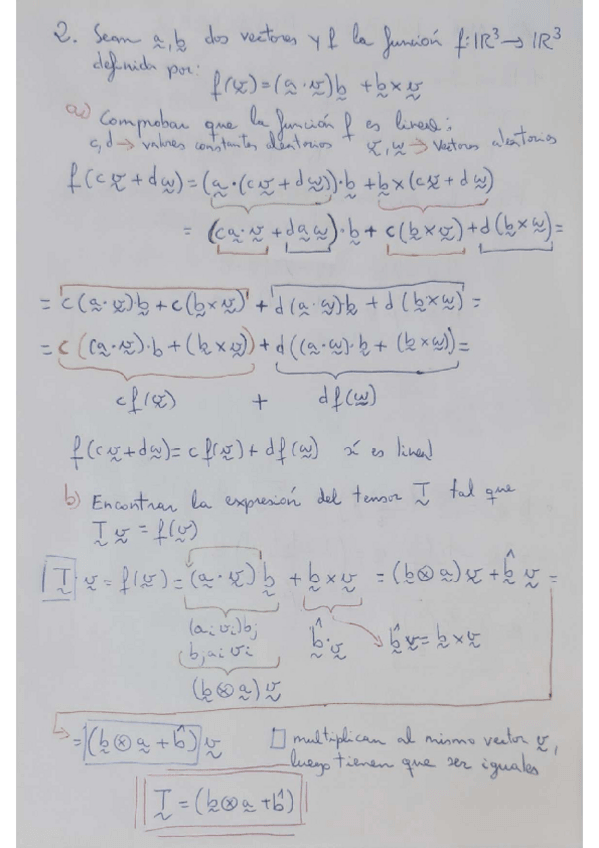 2. Sean a, b dos vectores y f la función f: IR³ → IR³
definida por:
f(v) = (a · v) b + b × v
a) Comprobar que la función f es lineal:
c, d → valores constantes aleatorios v, w → vectores aleatorios
f(c v + d w) = (a · (c v + d w)) · b + b × (c v + d w)
= (c a · v + d a w) · b + c (b × v) + d (b × w) =
= c (a · v) b + c (b × v) + d (a · w) b + d (b × w) =
= c ((a · v) · b + (b × v)) + d ((a · w) · b + (b × w)) =
c f(v) + d f(w)
f(c v + d w) = c f(v) + d f(w) sí es lineal
b) Encontrar la expresión del tensor T tal que
T v = f(v)
T v = f(v) = (a · v) b + b × v = (b ⊗ a) v + b̂ v =
(aᵢ vᵢ) bⱼ
bⱼ aᵢ vᵢ b̂ · v b̂ v = b × v
(b ⊗ a) v
= (b ⊗ a + b̂) v □ multiplican al mismo vector v,
luego tienen que ser iguales
T = (b ⊗ a + b̂)